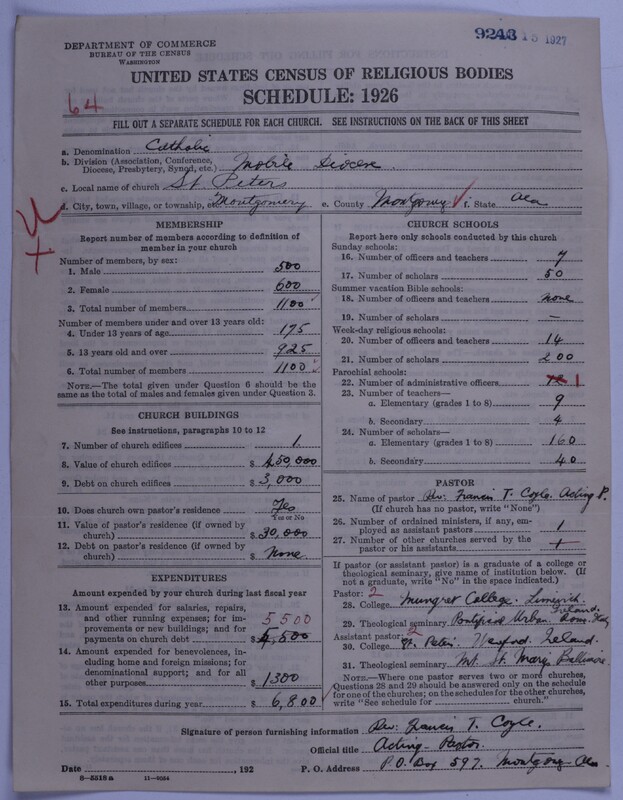 DEPARTMENT OF COMMERCE
BUREAU OF THE CENSUS
WASHINGTON
15 1927
UNITED STATES CENSUS OF RELIGIOUS BODIES
SCHEDULE: 1926
64
FILL OUT A SEPARATE SCHEDULE FOR EACH CHURCH. SEE INSTRUCTIONS ON THE BACK OF THIS SHEET
a. Denomination Catholic
b. Division (Association, Conference, Diocese, Presbytery, Synod, etc.) Mobile Diocese
c. Local name of church St Peters
d. City, town, village, or township, Montgomery e. County Montgomery f. State Ala
MEMBERSHIP
Report number of members according to definition of
member in your church
Number of members, by sex:
1. Male 500
2. Female 600
3. Total number of members 1100
Number of members under and over 13 years old:
4. Under 13 years of age 175
5. 13 years old and over 925
6. Total number of members 1100
NOTE.—The total given under Question 6 should be
same as the total of males and females given under Question 3.
CHURCH BUILDINGS
See instructions, paragraphs 10 to 12
7. Number of church edifices 1
8. Value of church edifices $ 50,000
9. Debt on church edifices $ 3,000
10. Does church own pastor's residence Yes
Yes or No
11. Value of pastor's residence (if owned by
church) $ 30,000
12. Debt on pastor's residence (if owned by
church) $ None
EXPENDITURES
Amount expended by your church during last fiscal year
13. Amount expended for salaries, repairs,
and other running expenses; for im-
provements or new buildings; and for
payments on church debt $ 5500
14. Amount expended for benevolences, in-
cluding home and foreign missions; for
denominational support; and for all
other purposes $ 1300
15. Total expenditures during year $ 6,800
CHURCH SCHOOLS
Report here only schools conducted by this church
Sunday schools:
16. Number of officers and teachers 7
17. Number of scholars 50
Summer vacation Bible schools:
18. Number of officers and teachers none
19. Number of scholars —
Week-day religious schools:
20. Number of officers and teachers 14
21. Number of scholars 200
Parochial schools:
22. Number of administrative officers 1
23. Number of teachers—
a. Elementary (grades 1 to 8) 9
b. Secondary 4
24. Number of scholars—
a. Elementary (grades 1 to 8) 160
b. Secondary 40
PASTOR
25. Name of pastor Rev. Francis T. Coyle. Acting P.
(If church has no pastor, write "None")
26. Number of ordained ministers, if any, em-
ployed as assistant pastors 1
27. Number of other churches served by the
pastor or his assistants 1
If pastor (or assistant pastor) is a graduate of a college or
theological seminary, give name of institution below. (If
not a graduate, write "No" in the space indicated.)
Pastor: 2
28. College Mungret College. Limerick. Ireland.
29. Theological seminary Pontifical Urban. Rome. Italy
Assistant pastor: 2
30. College St. Peters Wexford Ireland.
31. Theological seminary Mt. St. Marys Baltimore.
NOTE.—Where one pastor serves two or more churches,
Questions 28 and 29 should be answered only on the schedule
for one of the churches; on the schedules for the other churches,
write "See schedule for church."
Signature of person furnishing information Rev. Francis T. Coyle.
Official title Acting-Pastor.
Date , 192 P. O. Address P.O. Box 597. Montgomery Ala
8—5518a 11—9034